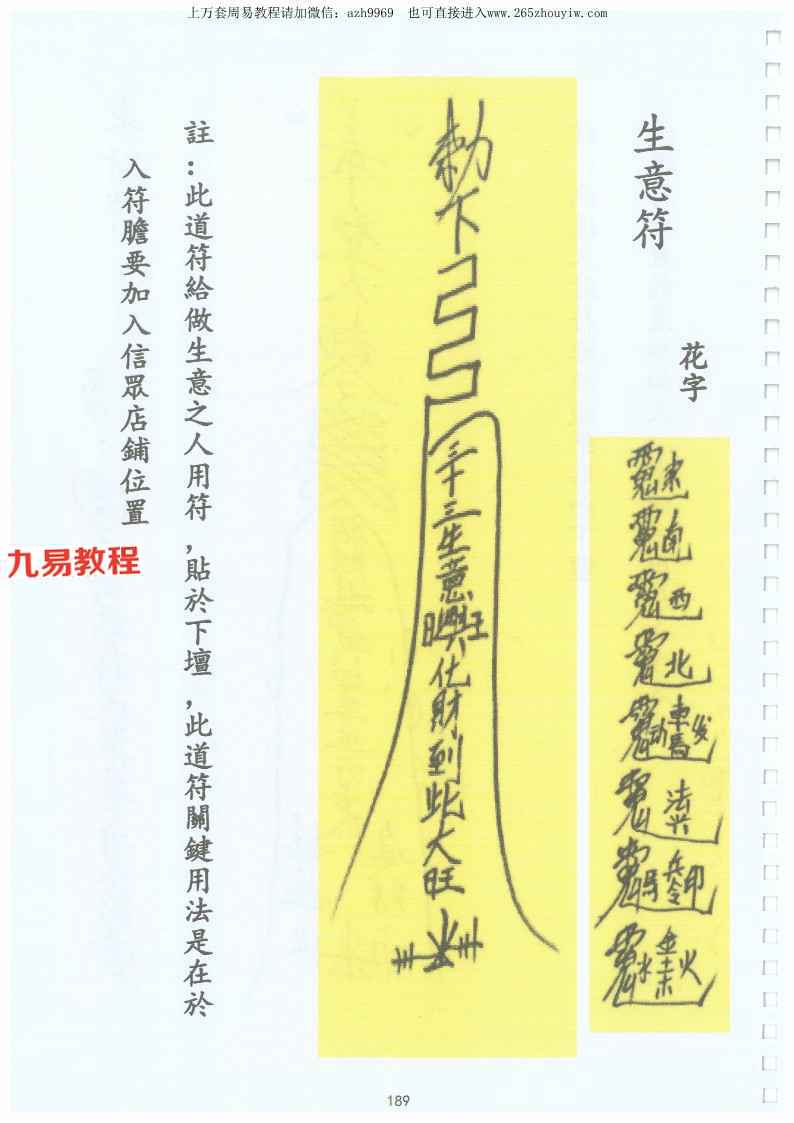 上万套周易教程请加微信：azh9969 也可直接进入www.265zhouyiw.com
生意符
花字
東
南
西
北
車馬
法
兵令印
火
勅下
三十三生意興旺化財到此大旺
註：此道符給做生意之人用符，貼於下壇，此道符關鍵用法是在於
入符膽要加入信眾店鋪位置
九易教程
189